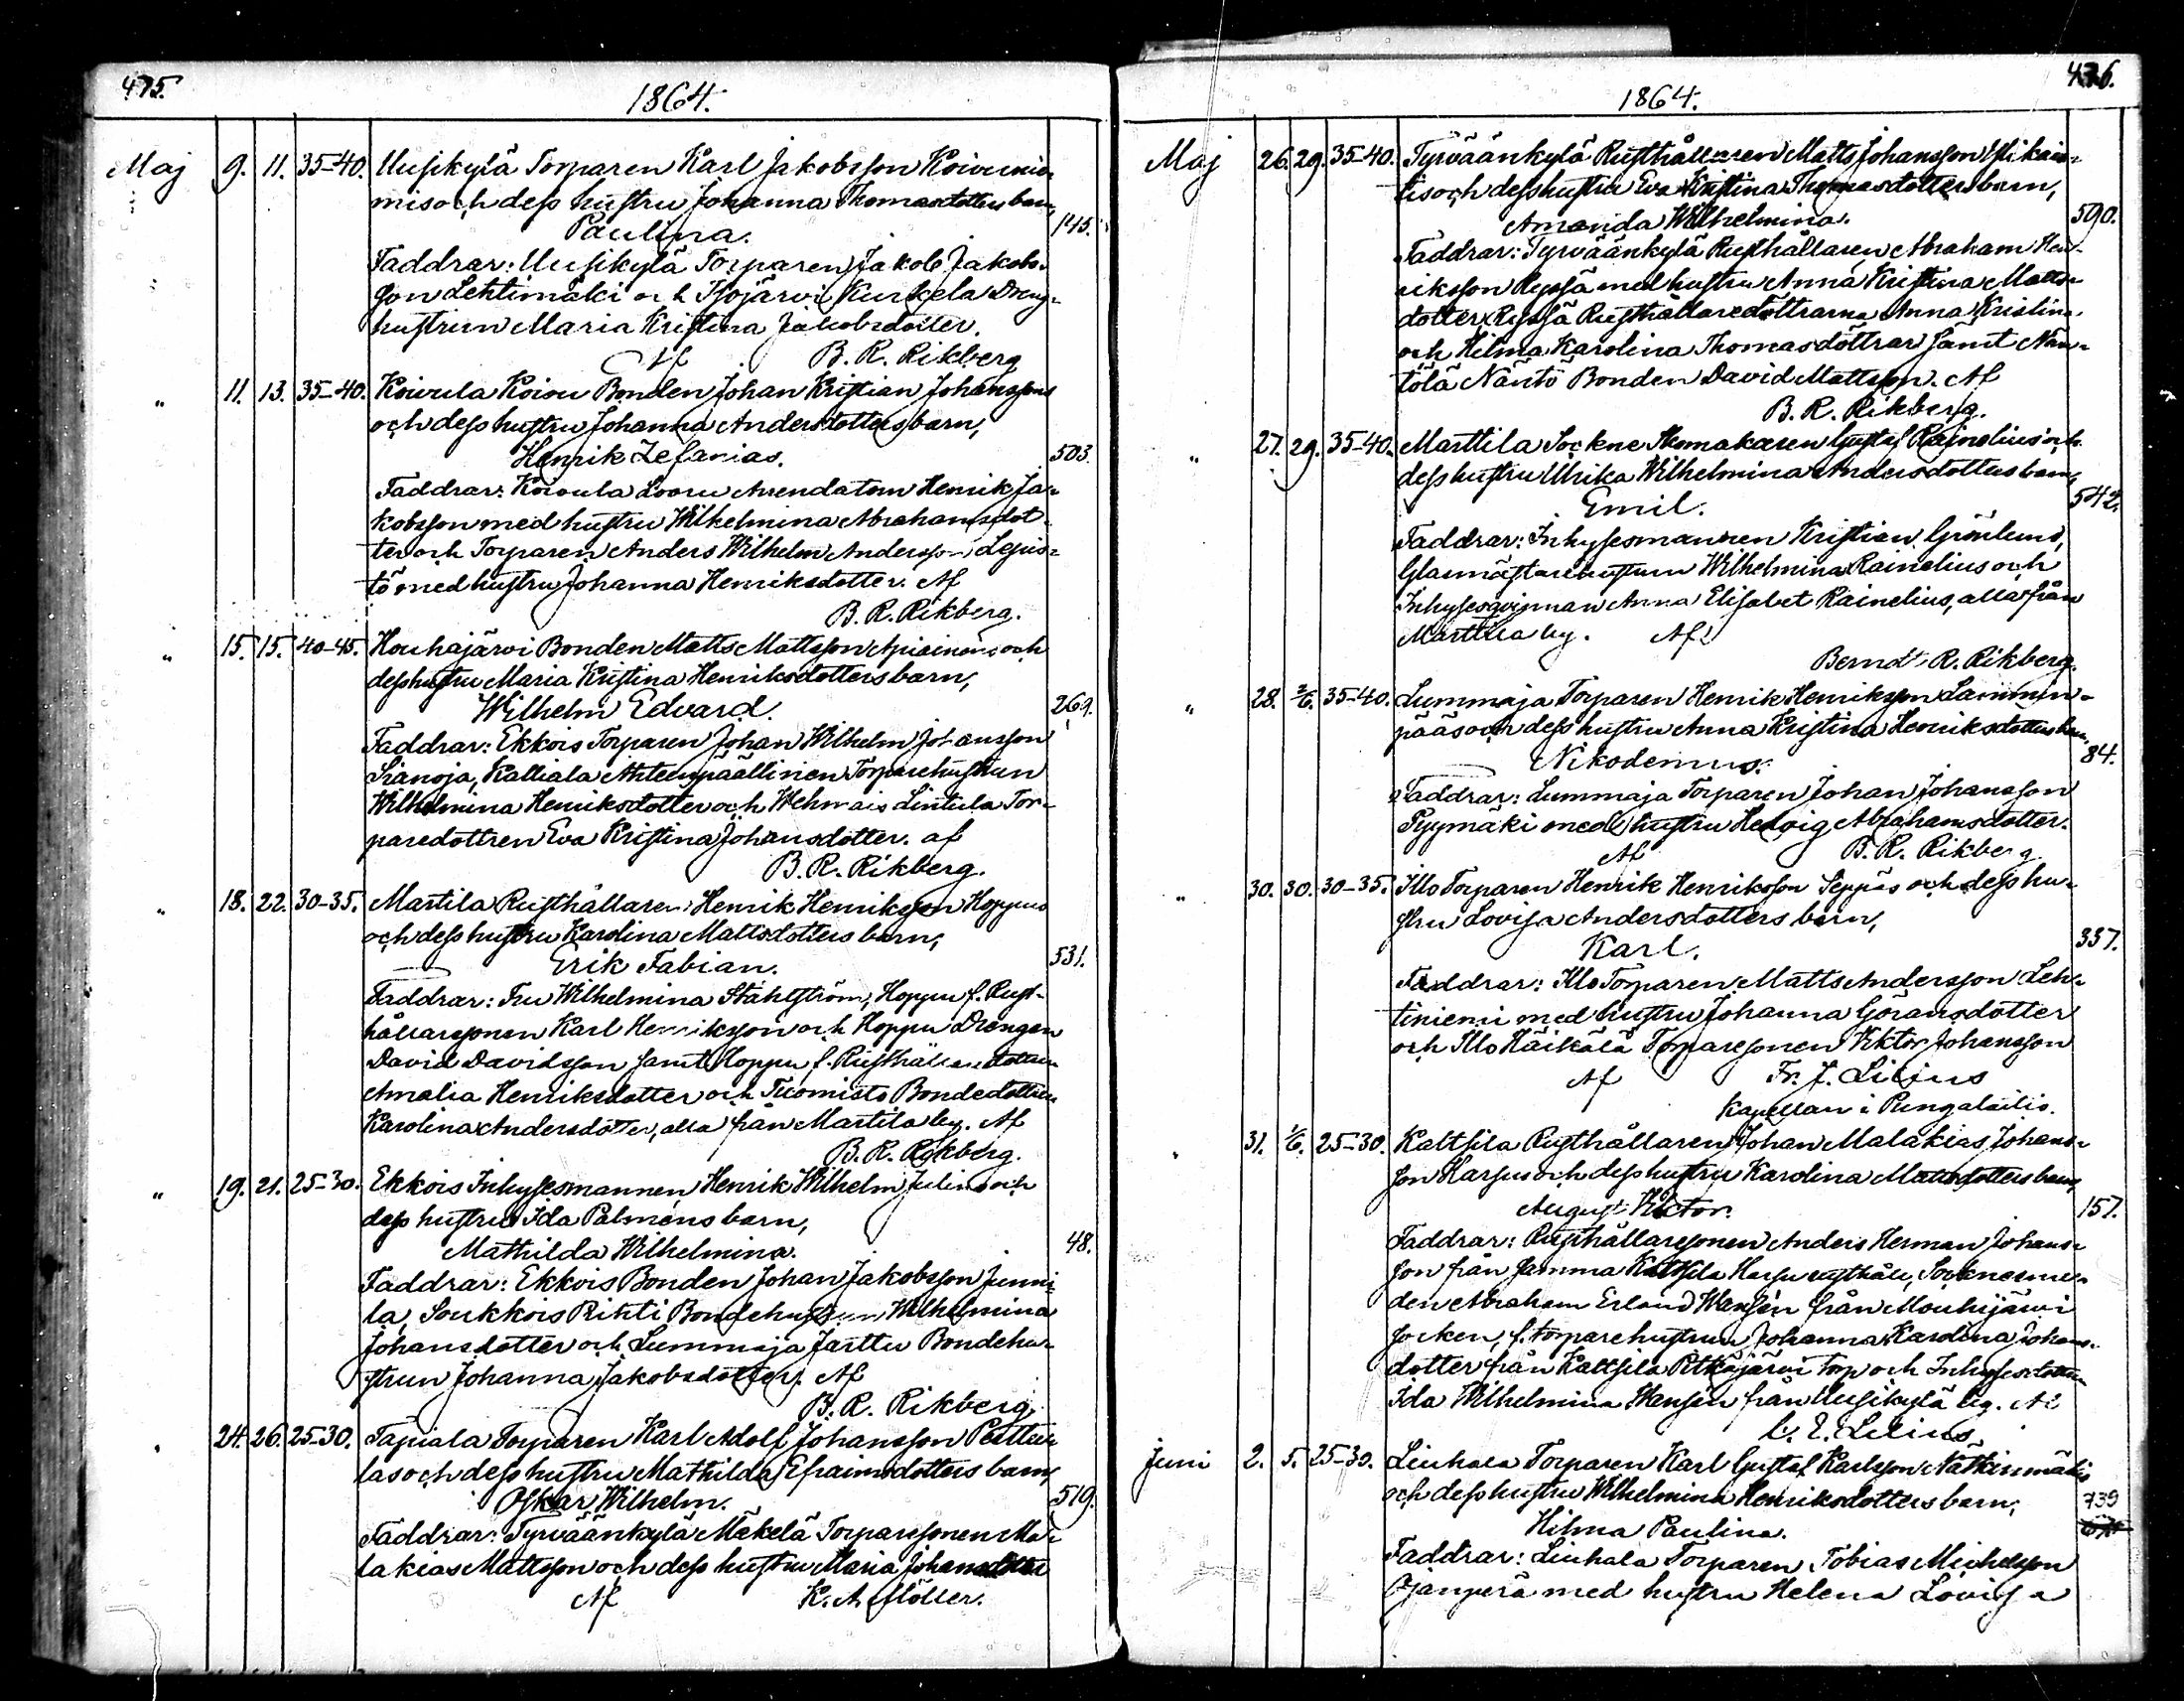 475.
1864.
Maj 9. 11. 35-40. Uusikylä Torparen Karl Jakobsson Koivunie-
mis och dess hustru Johanna Thomasdotters barn,
Paulina. 145.
Faddrar: Uusikylä Torparen Jakob Jakobs-
son Lehtimäki och Isojärvi Kurkela Dreng-
hustrun Maria Kristina Jakobsdotter.
Af B. R. Rikberg
" 11. 13. 35-40. Koivula Koivu Bonden Johan Kristian Johanssons
och dess hustru Johanna Andersdotters barn,
Henrik Zefanias. 503.
Faddrar: Koivula Arrendatorn Henrik Ja-
kobsson med hustru Wilhelmina Abrahamsdot-
ter och Torparen Anders Wilhelm Andersson Lepis-
tö med hustru Johanna Henriksdotter. Af
B. R. Rikberg.
" 15. 15. 40-45. Houhajärvi Bonden Matts Mattsson och
dess hustru Maria Kristina Henriksdotters barn,
Wilhelm Edvard. 269.
Faddrar: Ekkois Torparen Johan Wilhelm Johansson
Sianoja, Kalliala Ahteenpäällinen Torparehustrun
Wilhelmina Henriksdotter och Wehmais Lintula Tor-
paredottren Eva Kristina Johansdotter. af
B. R. Rikberg.
" 18. 22. 30-35. Martila Rusthållaren Henrik Henriksson Hoppus
och dess hustru Karolina Mattsdotters barn,
Erik Fabian. 531.
Faddrar: Fru Wilhelmina Stählström, Hoppu f. Rust-
hållaresonen Karl Henriksson och Hoppu Drengen
David Davidsson samt Hoppu f. Rusthållaredottren
Amalia Henriksdotter och Tuomisto Bondedottren
Karolina Andersdotter, alla från Martila by. Af
B. R. Rikberg.
" 19. 21. 25-30. Ekkois Inhysesmannen Henrik Wilhelm Julins och
dess hustru Ida Palmens barn,
Mathilda Wilhelmina. 48.
Faddrar: Ekkois Bonden Johan Jakobsson Junni-
la, Soukkois Pihti Bondehustrun Wilhelmina
Johansdotter och Lummaja Jarttu Bondehu-
strun Johanna Jakobsdotter. Af
B. R. Rikberg
" 24. 26. 25-30. Tapiala Torparen Karl Adolf Johansson Perttu-
las och dess hustru Mathilda Efraimsdotters barn,
Oskar Wilhelm. 519.
Faddrar: Tyrväänkylä Mäkelä Torparesonen Ma-
lakias Mattsson och dess hustru Maria Johansdotter
Af K. A. Möller.
476.
1864.
Maj 26. 29. 35-40. Tyrväänkylä Rusthållaren Matts Johansson Ylikais-
tis och dess hustru Eva Kristina Thomasdotters barn,
Amanda Wilhelmina. 590.
Faddrar: Tyrväänkylä Rusthållaren Abraham Hen-
riksson Ryssä med hustru Anna Kristina Matts-
dotter, Ryssä Rusthållaredöttrarna Anna Kristina
och Hilma Karolina Thomasdöttrar samt Nän-
tölä Näntö Bonden David Mattsson. Af
B. R. Rikberg.
" 27. 29. 35-40. Marttila Sockne Skomakaren Gustaf Rainelius och
dess hustru Ulrika Wilhelmina Andersdotters barn,
Emil. 542.
Faddrar: Inhysesmannen Kristian Grönlund,
Glasmästarehustrun Wilhelmina Rainelius och
Inhysesqvinnan Anna Elisabet Rainelius, alla från
Marttila by. Af
Bernd. R. Rikberg.
" 28. 2/6. 35-40. Lummaja Torparen Henrik Henriksson Lammin-
pääs och dess hustru Anna Kristina Henriksdotters barn,
Nikodemus. 84.
Faddrar: Lummaja Torparen Johan Johansson
Pyymäki med hustru Hedvig Abrahamsdotter.
Af B. R. Rikberg
" 30. 30. 30-35. Illo Torparen Henrik Henriksson Seppäs och dess hu-
stru Lovisa Andersdotters barn,
Karl. 337.
Faddrar: Illo Torparen Matts Andersson Leh-
tiniemi med hustru Johanna Göransdotter
och Illo Häikälä Torparesonen Viktor Johansson
Af Fr. J. Lilius
Kapellan i Pungalaitio.
" 31. 1/6. 25-30. Kaltsila Rusthållaren Johan Malakias Johans-
son Harjus och dess hustru Karolina Mattsdotters barn,
August Viktor. 157.
Faddrar: Rusthållaresonen Anders Herman Johans-
son från samma Kaltsila Harju rusthåll, Socknesme-
den Abraham Erland Wansén från Mouhijärvi
socken, f. torparehustrun Johanna Karolina Johans-
dotter från Kaltsila Pitkäjärvi torp och Inhysesdottren
Ida Wilhelmina Wansén från Uusikylä by. Af
C. E. Lilius
Juni 2. 5. 25-30. Liuhala Torparen Karl Gustaf Karlsson Nätkinmäkis
och dess hustru Wilhelmina Henriksdotters barn, 739
Hilma Paulina.
Faddrar: Liuhala Torparen Tobias Michelsson
Ojanperä med hustru Helena Lovisa